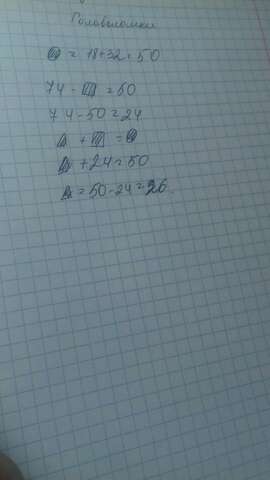 Головоломки
= 18+32=50
74 - = 50
74-50=24
+ =
+24=50
= 50-24=26